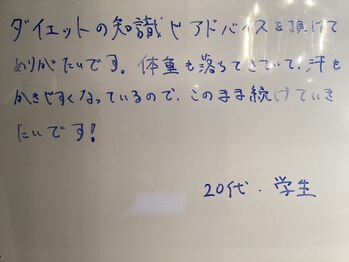 ダイエットの知識やアドバイスを頂けて
ありがたいです。体重も落ちてきていて、汗も
かきやすくなっているので、このまま続けていき
たいです！
20代・学生